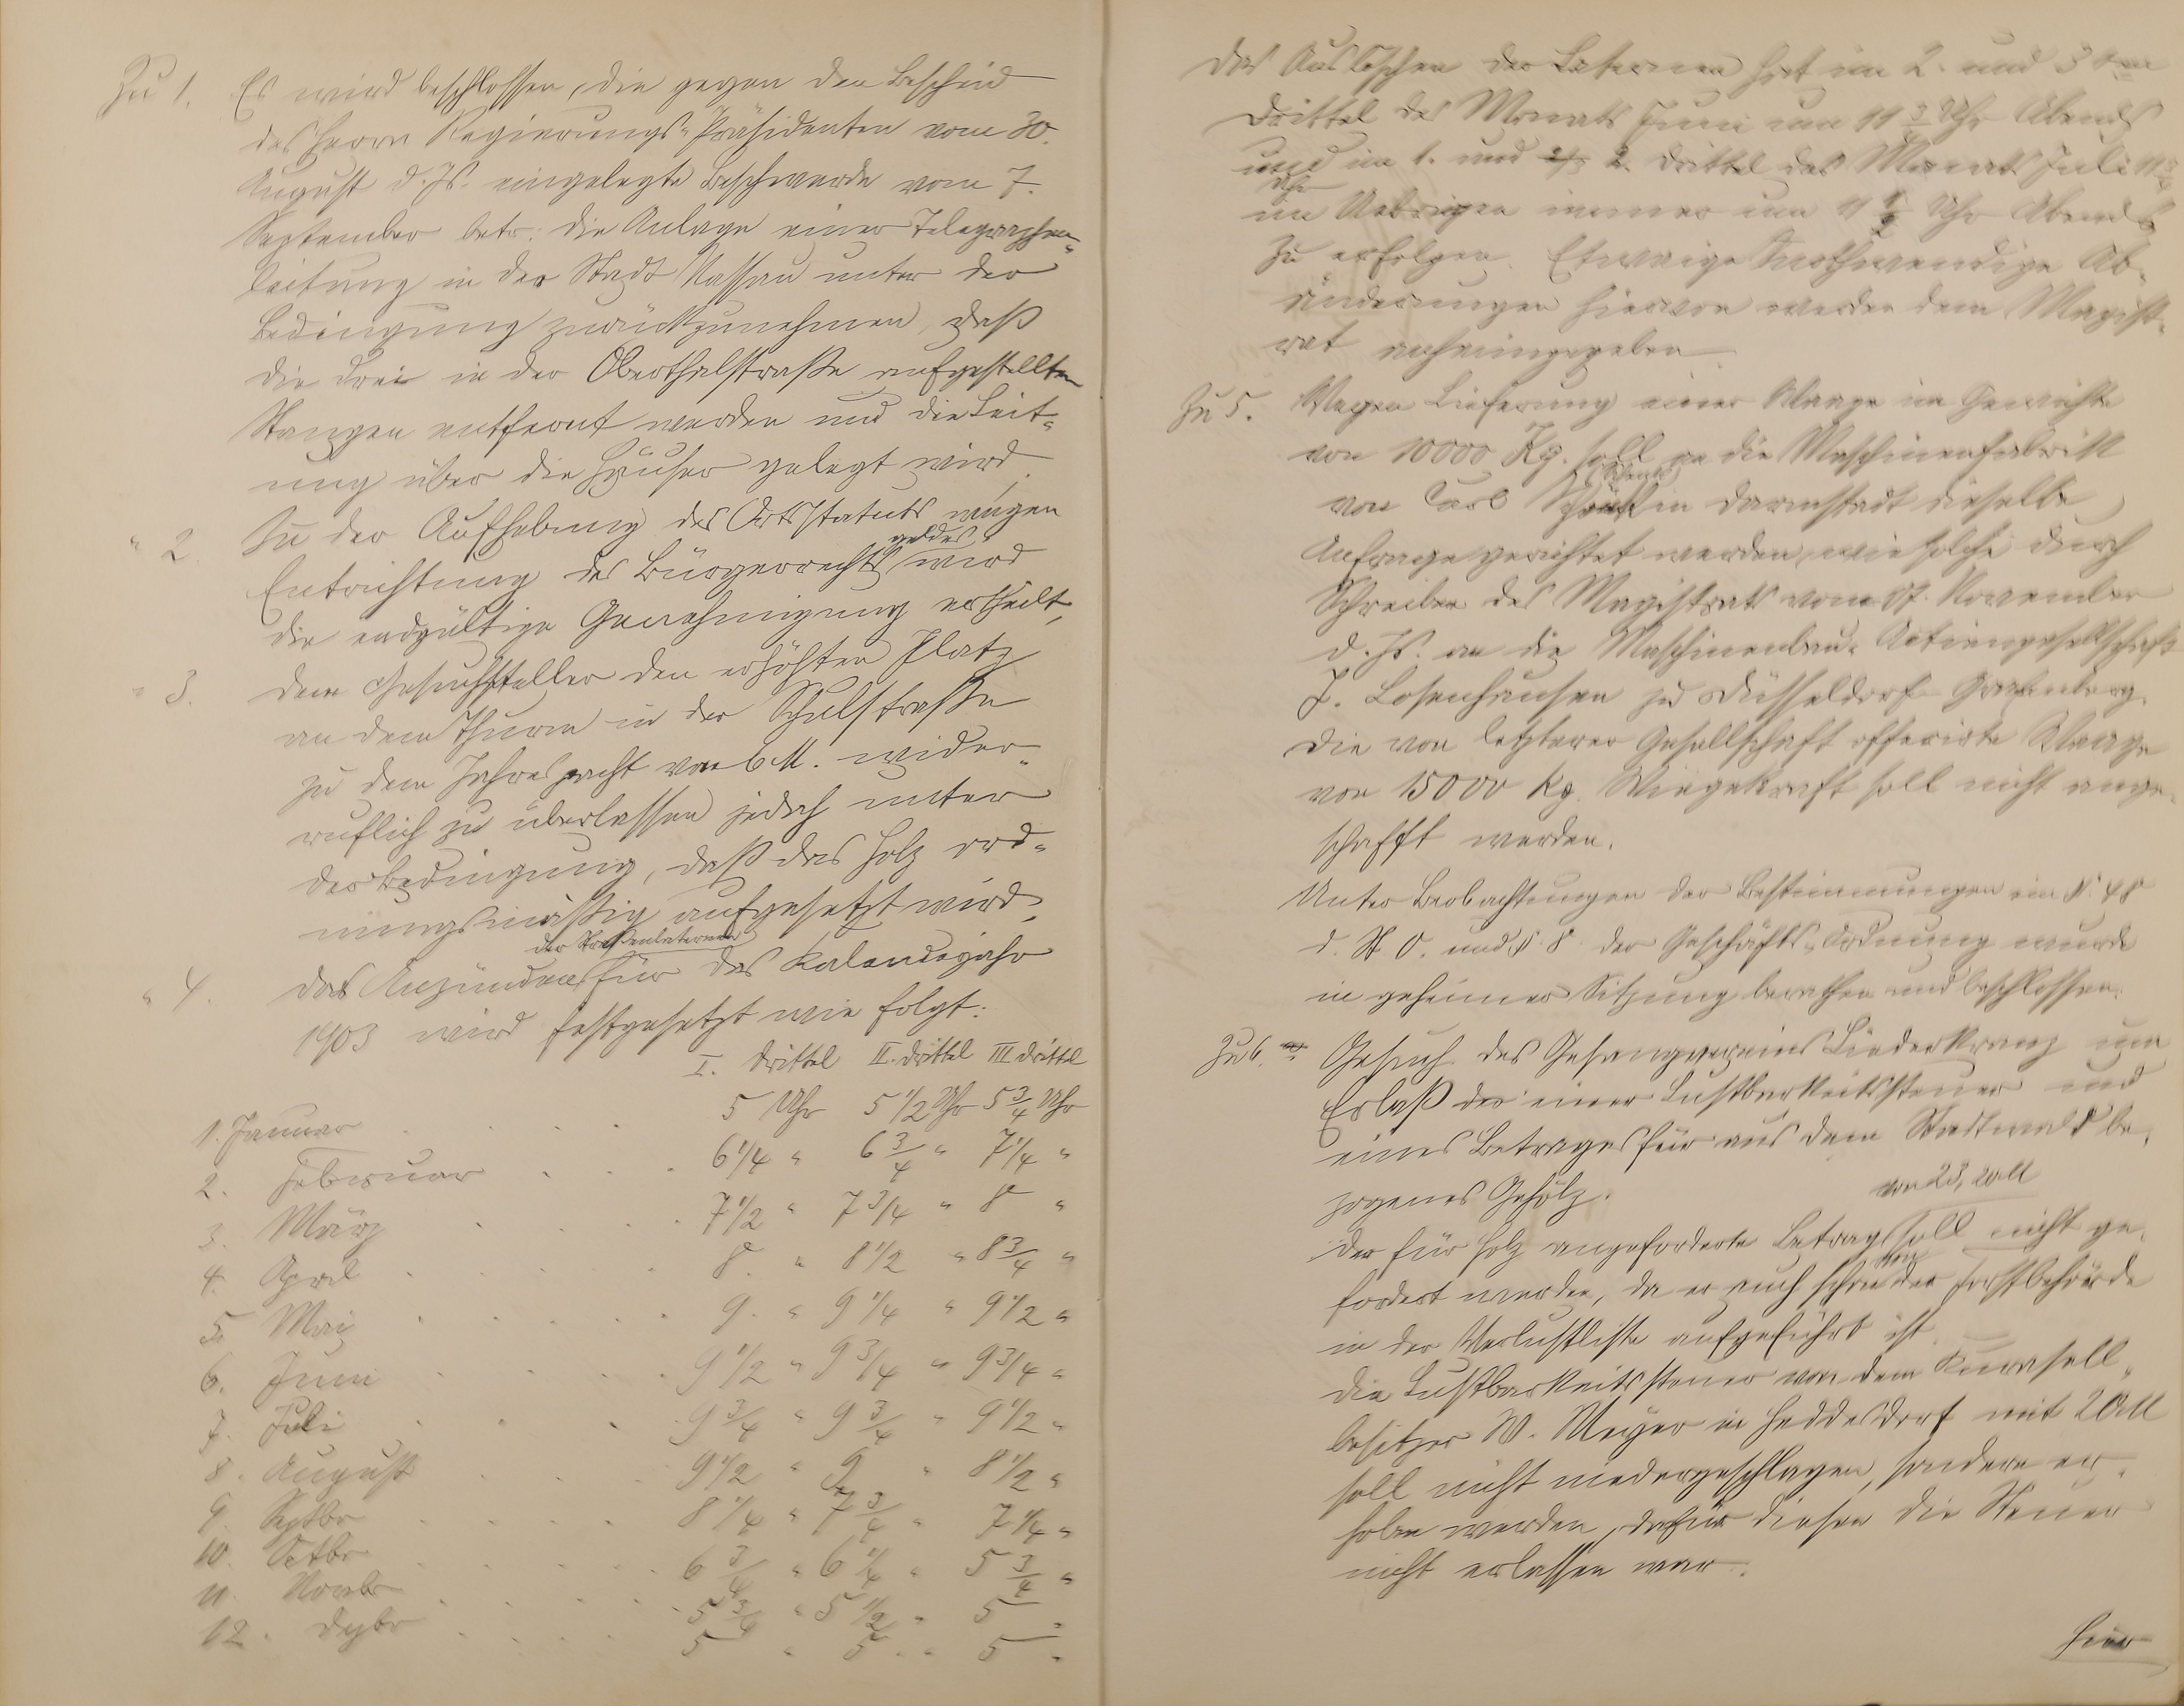 Zu 1. Es wird beschlossen, die gegen den Bescheid
des Herrn Regierungs-Präsidenten vom 30.
August d. Js. eingelegte Beschwerde vom 7.
September betr: die Anlage einer Telegraphen-
leitung in der Stadt Nassau unter der
Bedingung zurückzunehmen, daß
die drei in der Oberthalstraße aufgestellten
Stangen entfernt werden und die Leit-
ung über die Häuser gelegt wird.
" 2. Zu der Aufhebung des Ortsstatuts wegen
Entrichtung des Bürgerrechtsgeldes wird
die endgültige Genehmigung ertheilt,
" 3. dem Gesuchsteller den erhöhten Platz
an dem Thurm in der Schulstraße
zu dem Jahrespacht von 6 M. wider-
ruflich zu überlassen jedoch unter
der Bedingung, daß das Holz ord-
nungsmäßig aufgesetzt wird.
" 4. Das Anzünden der Straßenlaternen für das Kalenderjahr
1903 wird festgesetzt wie folgt:
I. Drittel II. Drittel III Drittel
1. Januar 5 Uhr 5 1/2 Uhr 5 3/4 Uhr
2. Februar 6 1/4 " 6 3/4 " 7 1/4 "
3. März 7 1/2 " 7 3/4 " 8 "
4. April 8 " 8 1/2 " 8 3/4 "
5. Mai 9 " 9 1/4 " 9 1/2 "
6. Juni 9 1/2 " 9 3/4 " 9 3/4 "
7. Juli 9 3/4 " 9 3/4 " 9 1/2 "
8. August 9 1/2 " 9 " 8 1/2 "
9. Septbr 8 1/4 " 7 3/4 " 7 1/4 "
10. Octbr 6 3/4 " 6 1/4 " 5 3/4 "
11. Novbr 5 3/4 " 5 1/2 " 5 "
12. Dezbr 5 " 5 " 5 "
Das Auslöschen der Laternen hat im 2. und 3ten
Drittel des Monats Juni um 11 3/4 Uhr Abends
und im 1. und 2. Drittel des Monats Juli 11 3/4
Uhr
im Uebrigen immer um 11 1/2 Uhr Abends
zu erfolgen. Etwaige nothwendige Ab-
änderungen hiervon werden dem Magist-
rat anheimgegeben.
Zu 5. Wegen Lieferung einer Waage im Gewichte
von 10000 Kg. soll an die Maschinenfabrik
von Carl Schenk in Darmstadt dieselbe
Anfrage gerichtet werden, wie solche durch
Schreiben des Magistrats vom 17. November
d. Js. an die Maschinenbau-Actiengesellschaft
J. Losenhausen zu Düsseldorf Grafenberg.
Die von letzterer Gesellschaft offerirte Waage
von 15000 Kg. Wiegekraft soll nicht ange-
schafft werden.
Unter Beobachtungen der Bestimmungen im § 48
d. St. O. und § 8 der Geschäfts-Ordnung wurde
in geheimer Sitzung berathen und beschlossen.
Zu 6. Gesuch des Gesangvereins Liederkranz um
Erlaß der einer Lustbarkeitssteuer und
eines Betrages für aus dem Stadtwald be-
zogenes Gehölz.
Der für Holz angeforderte Betrag von 23,20 M soll nicht ge-
fordert werden, da er auch schon von der Forstbehörde
in der Verlustliste aufgeführt ist.
Die Lustbarkeitssteuer von dem Karusell-
besitzer W. Meyer in Heddesdorf mit 20 M
soll nicht niedergeschlagen, sondern er-
hoben werden, dafür diesen die Steuer
nicht erlassen war.